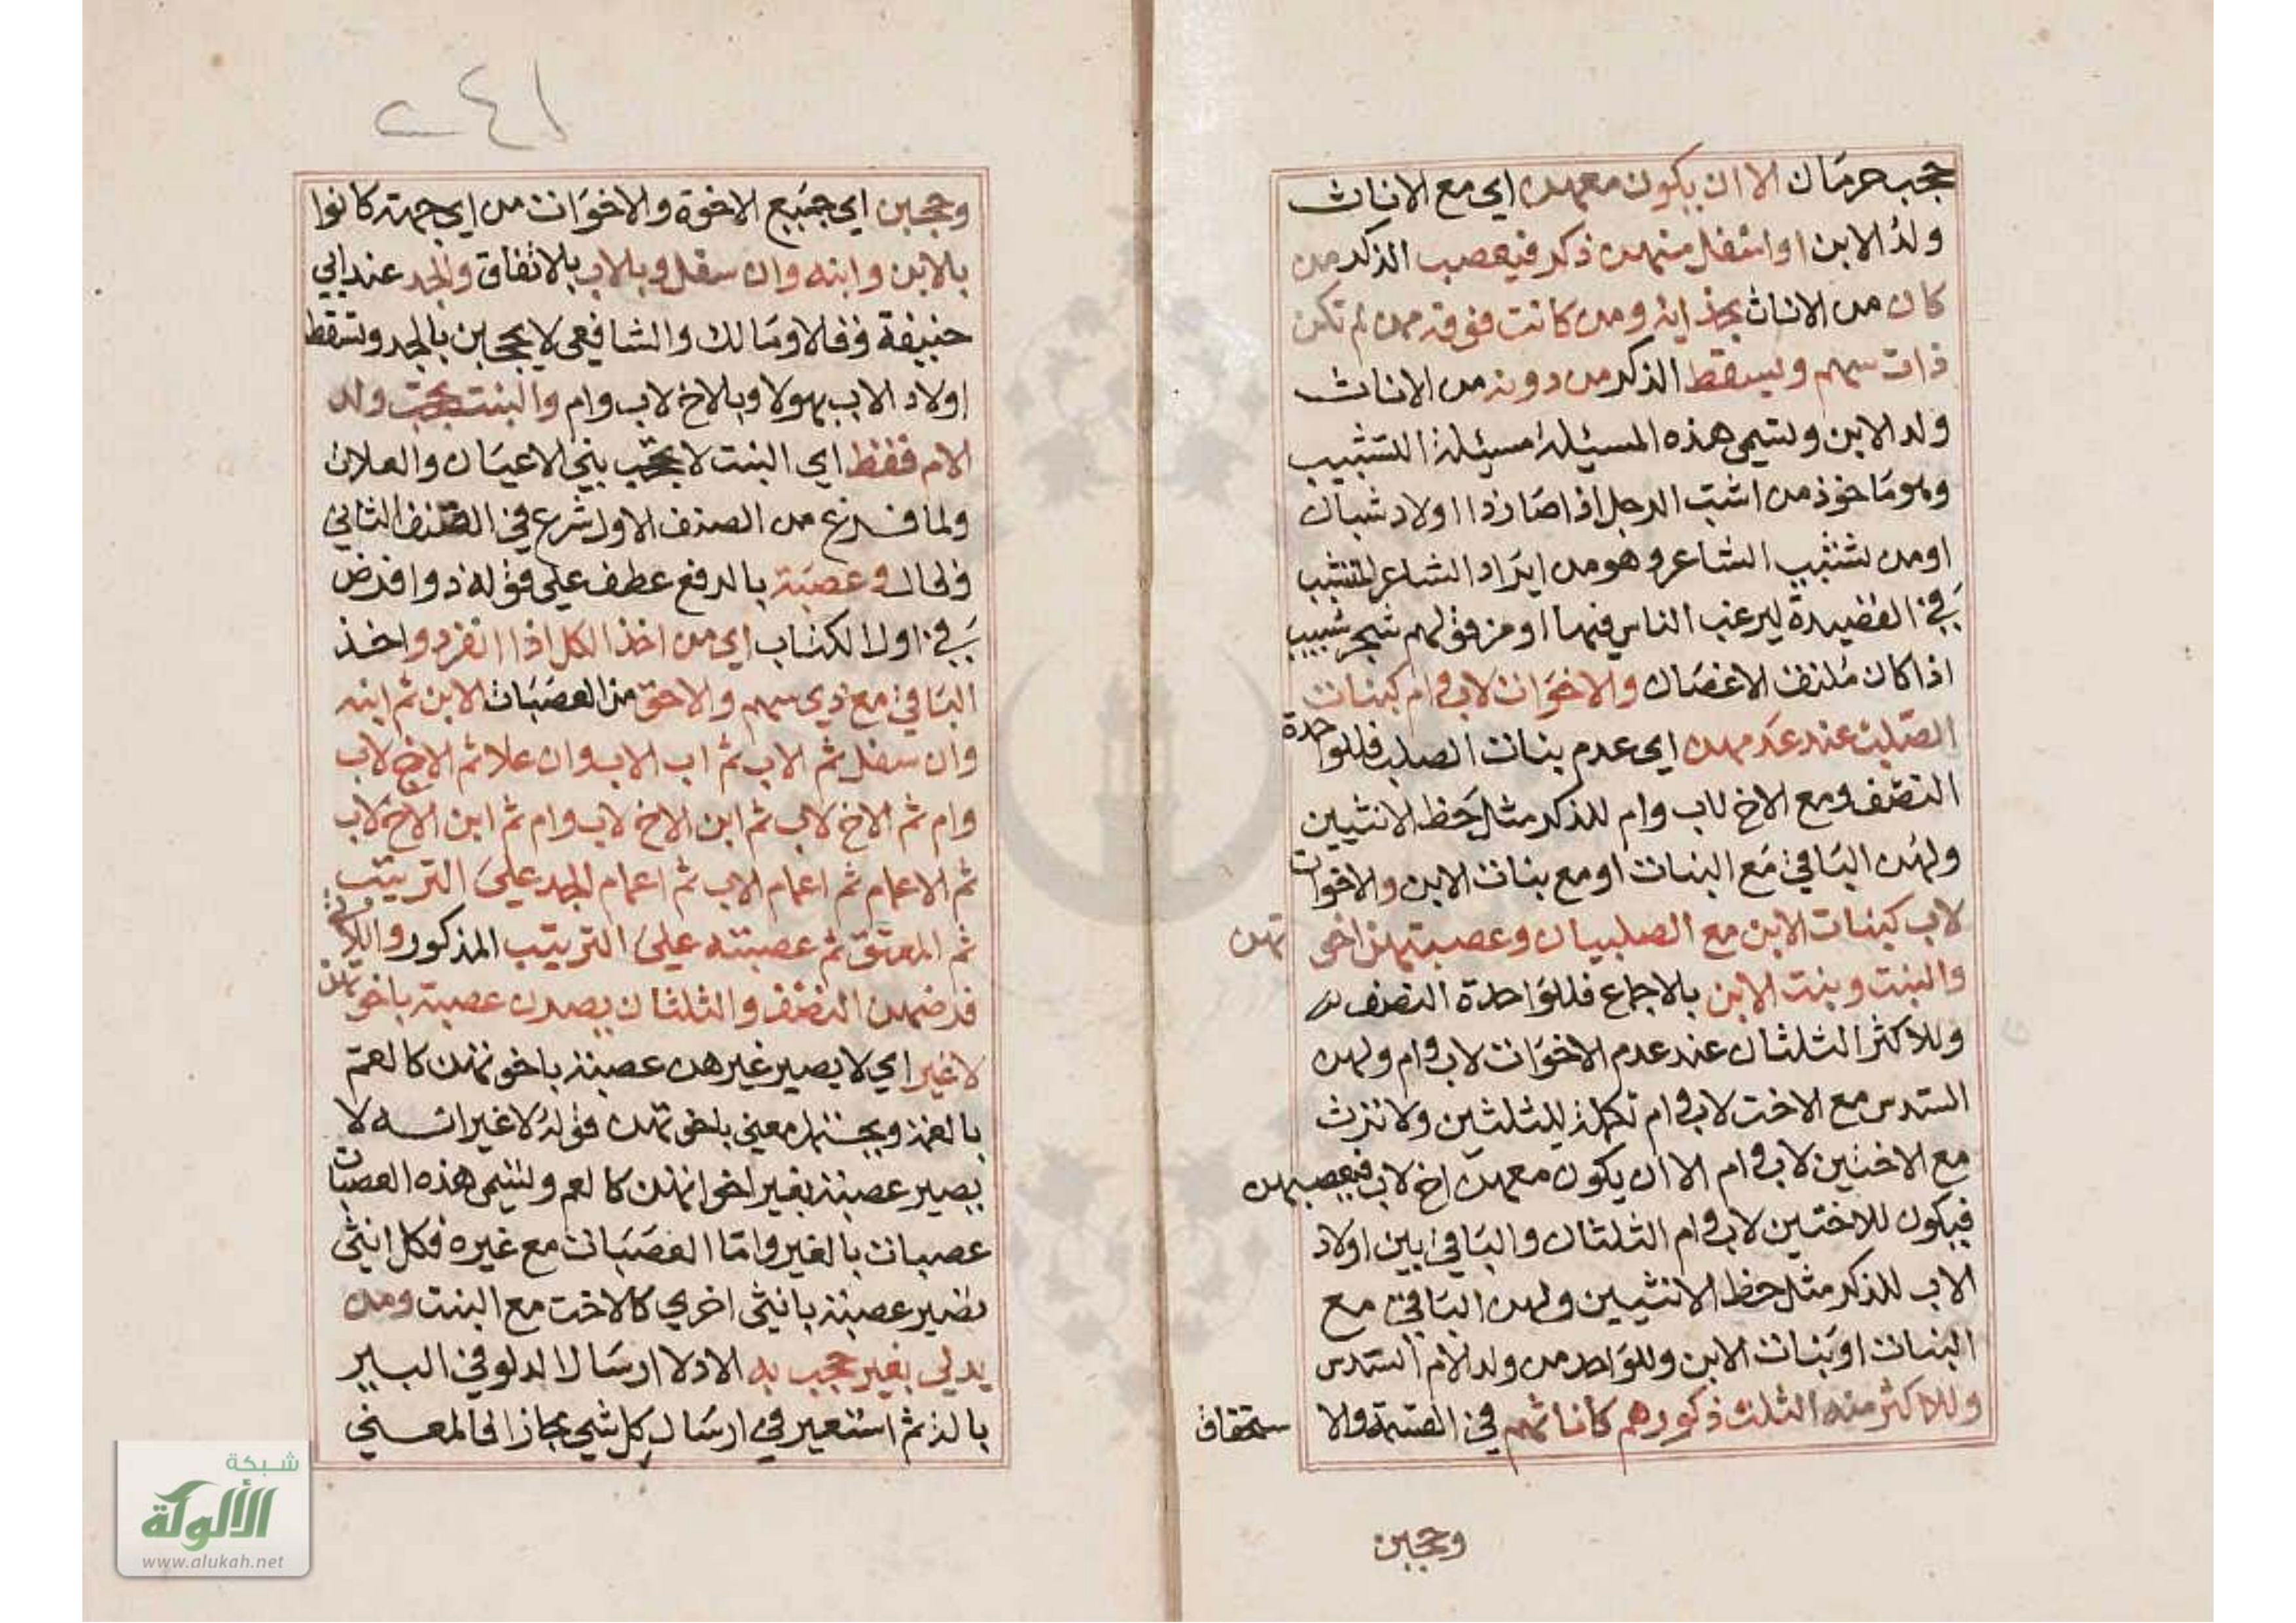 حجب حرمان الا ان يكون معهن اي مع الاناث
ولد الابن او اسفل منهن ذكر فيعصب الذكر من
كان من الاناث بحذايه ومن كانت فوقه ممن لم تكن
ذات سهم ويسقط الذكر من دونه من الاناث
ولد الابن وتسمى هذه المسئلة مسئلة التشبيب
وهو ماخوذ من اشب الرجل اذا صار ذا اولاد شبان
او من تشبيب الشاعر وهو من ايراد الشاعر التشبيب
في القصيدة ليرغب الناس فيها او من قولهم شجر شبيب
اذا كان ملتف الاغصان والاخوات لاب وام كبنات
الصلب عند عدمهن اي عدم بنات الصلب فللواحدة
النصف ومع الاخ لاب وام للذكر مثل حظ الانثيين
ولهن الباقي مع البنات او مع بنات الابن والاخوات
لاب كبنات الابن مع الصلبيات وعصبتهن اخوتهن
والبنت وبنت الابن بالاجماع فللواحدة النصف
وللاكثر الثلثان عند عدم الاخوات لاب وام ولهن
السدس مع الاخت لاب وام تكملة للثلثين ولا ترث
مع الاختين لاب وام الا ان يكون معهن اخ لاب فيعصبهن
فيكون للاختين لاب وام الثلثان والباقي بين اولاد
الاب للذكر مثل حظ الانثيين ولهن الباقي مع
البنات او بنات الابن وللواحد من ولد الام السدس
وللاكثر منه الثلث ذكورهم كاناثهم في القسمة والاستحقاق
وحجبن
٢٤١
وحجبن اي جميع الاخوة والاخوات من اي جهة كانوا
بالابن وابنه وان سفل وبالاب بالاتفاق والجد عند ابي
حنيفة وقالا ومالك والشافعي لا يحجبن بالجد وتسقط
اولاد الاب بهولا وبالاخ لاب وام والبنت تحجب ولد
الام فقط اي البنت لا تحجب بني الاعيان والعلات
ولما فرغ من الصنف الاول شرع في الصنف الثاني
وقال وعصبة بالرفع عطف على قوله ذوا فرض
في اول الكتاب اي من اخذ الكل اذا انفرد واخذ
الباقي مع ذي سهم والاحق من العصبات الابن ثم ابنه
وان سفل ثم الاب ثم اب الاب وان علا ثم الاخ لاب
وام ثم الاخ لاب ثم ابن الاخ لاب وام ثم ابن الاخ لاب
ثم الاعمام ثم اعمام الاب ثم اعمام الجد على الترتيب
ثم المعتق ثم عصبته على الترتيب المذكور واللاتي
فرضهن النصف والثلثان يصرن عصبة باخوتهن
لا غير اي لا يصير غيرهن عصبة باخوتهن كالعم
بالعمة ويحتمل معنى باخوتهن قوله لا غير انه لا
يصير عصبة بغير اخواتهن كالعم وتسمى هذه العصبات
عصبات بالغير واما العصبات مع غيره فكل انثى
تصير عصبة بانثى اخرى كالاخت مع البنت ومن
يدلي بغير حجب به الادلا ارسال الدلو في البير
بالذ ثم استعير في ارسال كل شي مجازا فالمعنى
شبكة
الألوكة
www.alukah.net